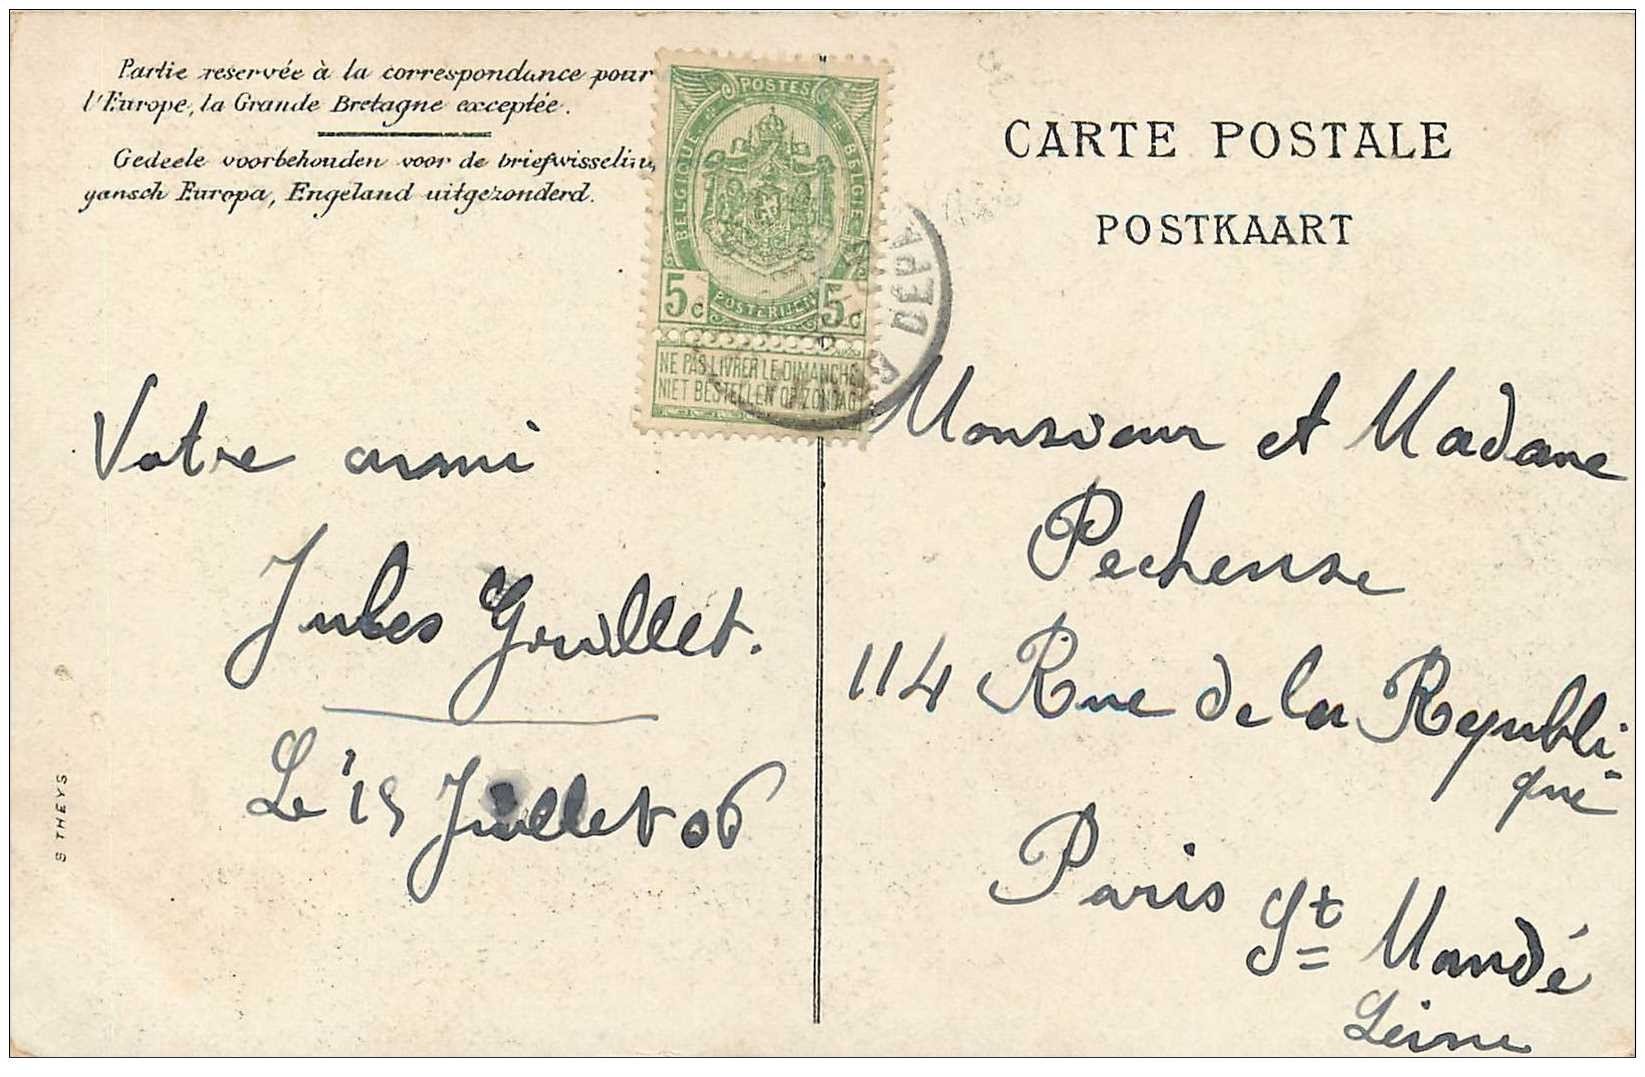 Partie reservée à la correspondance pour
l'Europe, la Grande Bretagne exceptée.
Gedeele voorbehouden voor de briefwisselin
gansch Europa, Engeland uitgezonderd.
POSTES
BELGIQUE
BELGIE
5c POSTERIJEN 5c
NE PAS LIVRER LE DIMANCHE
NIET BESTELLEN OP ZONDAG
DEPA
CARTE POSTALE
POSTKAART
Votre ami
Jules Gouillet.
Le 15 Juillet 06
S THEYS
Monsieur et Madame
Pechense
114 Rue de la Republi
que
Paris
St Mandé
Seine